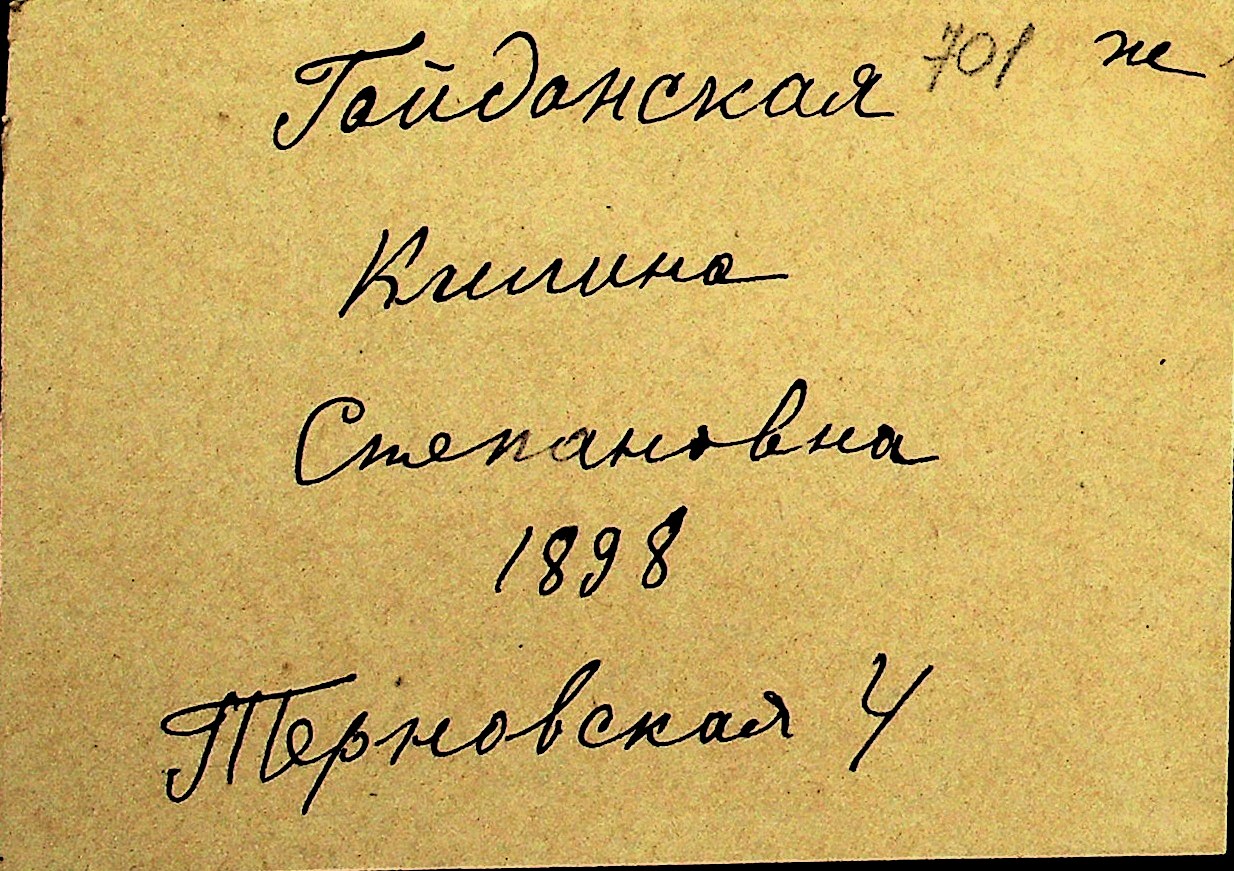 Гайданская 701 ж
Степановна
1898
Терновская 4